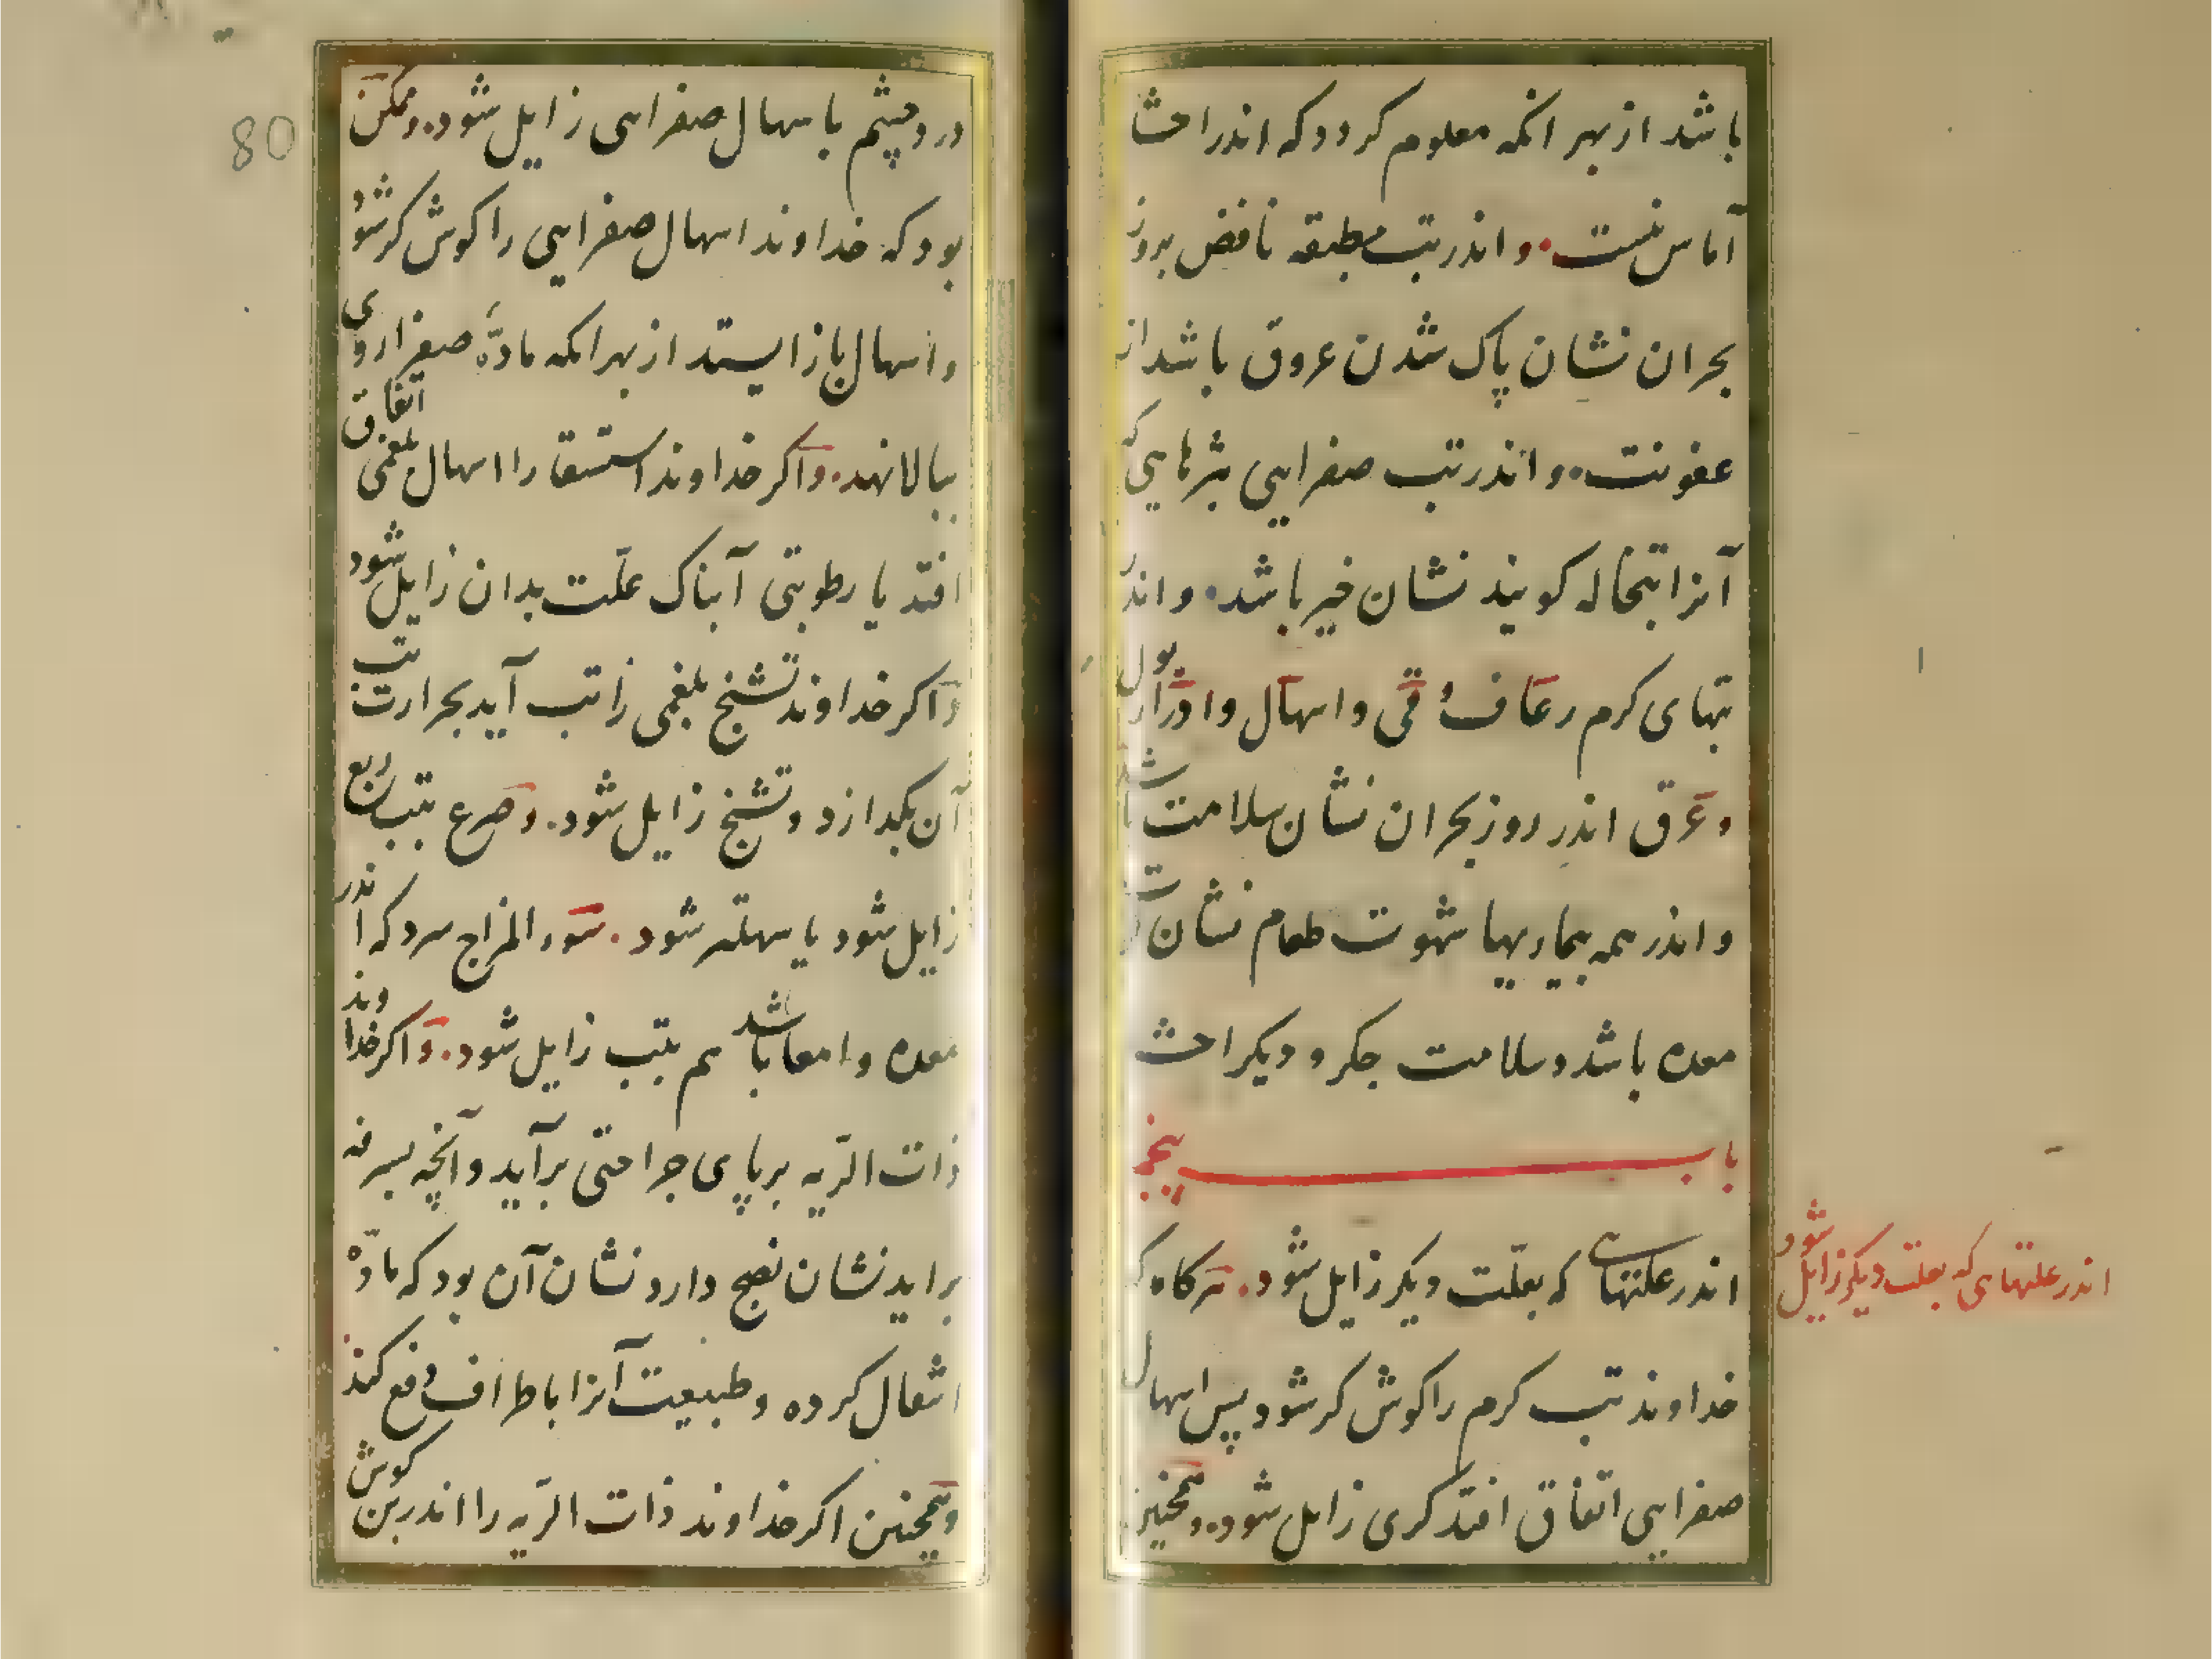 باشد از بهر انکه معلوم کردد که اندر احشا
آماس نیست و اندر تب مطبقه نافض بروز
بحران نشان پاک شدن عروق باشد از
عفونت و اندر تب صفرایی بثرهایی که
آنرا تبخاله کویند نشان خیر باشد و اندر
تبهای کرم رعاف و قی و اسهال و ادرار بول
و عرق اندر روز بحران نشان سلامت باشد
و اندر همه بیماریها شهوت طعام نشان
معده باشد و سلامت جکر و دیکر احشا
باب پنجم
اندر علتهایی که بعلّت دیکر زایل شود هرکاه که
اندر علتهای که بعلت دیکر زایل شود
خداوند تب کرم را کوش کر شود پس اسهال
صفرایی اتفاق افتد کری زایل شود و همچنین
درد چشم باسهال صفرایی زایل شود و ممکن
بود که خداوند اسهال صفرایی را کوش کر شود
و اسهال باز ایستد از بهر انکه مادّهٔ صفرا روی
ببالا نهد و اکر خداوند استسقا را اسهال بلغمی اتفاق
افتد یا رطوبتی آبناک علّت بدان زایل شود
و اکر خداوند تشنج بلغمی را تب آید بحرارت تب
آن بکدازد و تشنج زایل شود و صرع بتب ربع
زایل شود یا سهلتر شود سوء المزاج سرد که اندر
معده و امعا باشد هم بتب زایل شود و اکر خداوند
ذات الریه بر پای جراحتی برآید و آنچه بسرفه
براید نشان نضج دارد نشان آن بود که مادّه
انتقال کرده و طبیعت آنرا باطراف دفع کند
و همچنین اکر خداوند ذات الریه را اندر بن کوش
80